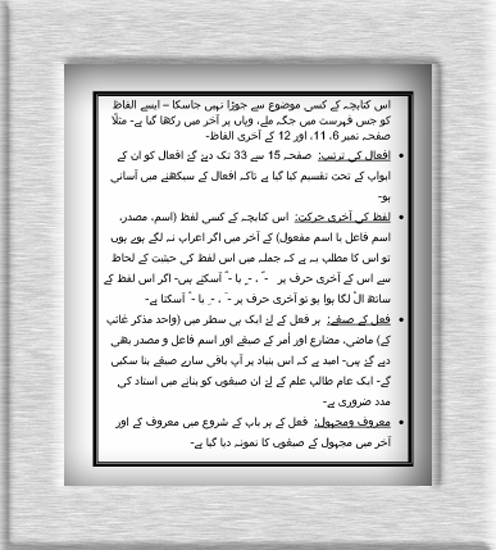 اس کتابچہ کے کسی موضوع سے جوڑا نہیں جاسکا – ایسے الفاظ
کو جس فہرست میں جگہ ملی، وہاں پر آخر میں رکھا گیا ہے- مثلاً
صفحہ نمبر 6، 11، اور 12 کے آخری الفاظ-
• افعال کی ترتیب: صفحہ 15 سے 33 تک دیۓ گۓ افعال کو ان کے
ابواب کے تحت تقسیم کیا گیا ہے تاکہ افعال کے سیکھنے میں آسانی
ہو-
• لفظ کی آخری حرکت: اس کتابچہ کے کسی لفظ (اسم، مصدر،
اسم فاعل یا اسم مفعول) کے آخر میں اگر اعراب نہ لگے ہوے ہوں
تو اس کا مطلب یہ ہے کہ جملہ میں اس لفظ کی حیثیت کے لحاظ
سے اس کے آخری حرف پر -ً ، -ٍ یا -ٌ آسکتے ہیں- اگر اس لفظ کے
ساتھ الْ لگا ہوا ہو تو آخری حرف پر -َ ، -ِ یا -ُ آسکتا ہے-
• فعل کے صیغے: ہر فعل کے لۓ ایک ہی سطر میں (واحد مذکر غائب
کے) ماضی، مضارع اور أمر کے صیغے اور اسم فاعل و مصدر بھی
دیے گۓ ہیں- امید ہے کہ اس بنیاد پر آپ باقی سارے صیغے بنا سکیں
گے- ایک عام طالب علم کے لۓ ان صیغوں کو بنانے میں استاد کی
مدد ضروری ہے-
• معروف ومجہول: فعل کے ہر باب کے شروع میں معروف کے اور
آخر میں مجہول کے صیغوں کا نمونہ دیا گیا ہے-